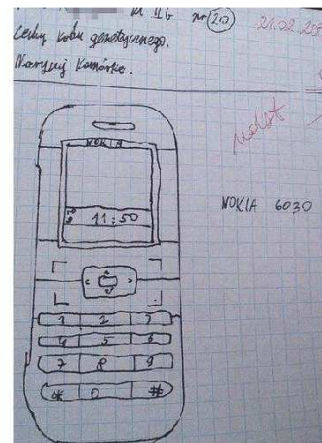 kl IIb nr 20 21.02.20
Cechy kodu genetycznego.
Narysuj komórkę.
ndst
NOKIA
NOKIA 6030
11:50
1 2 3
4 5 6
7 8 9
* 0 #